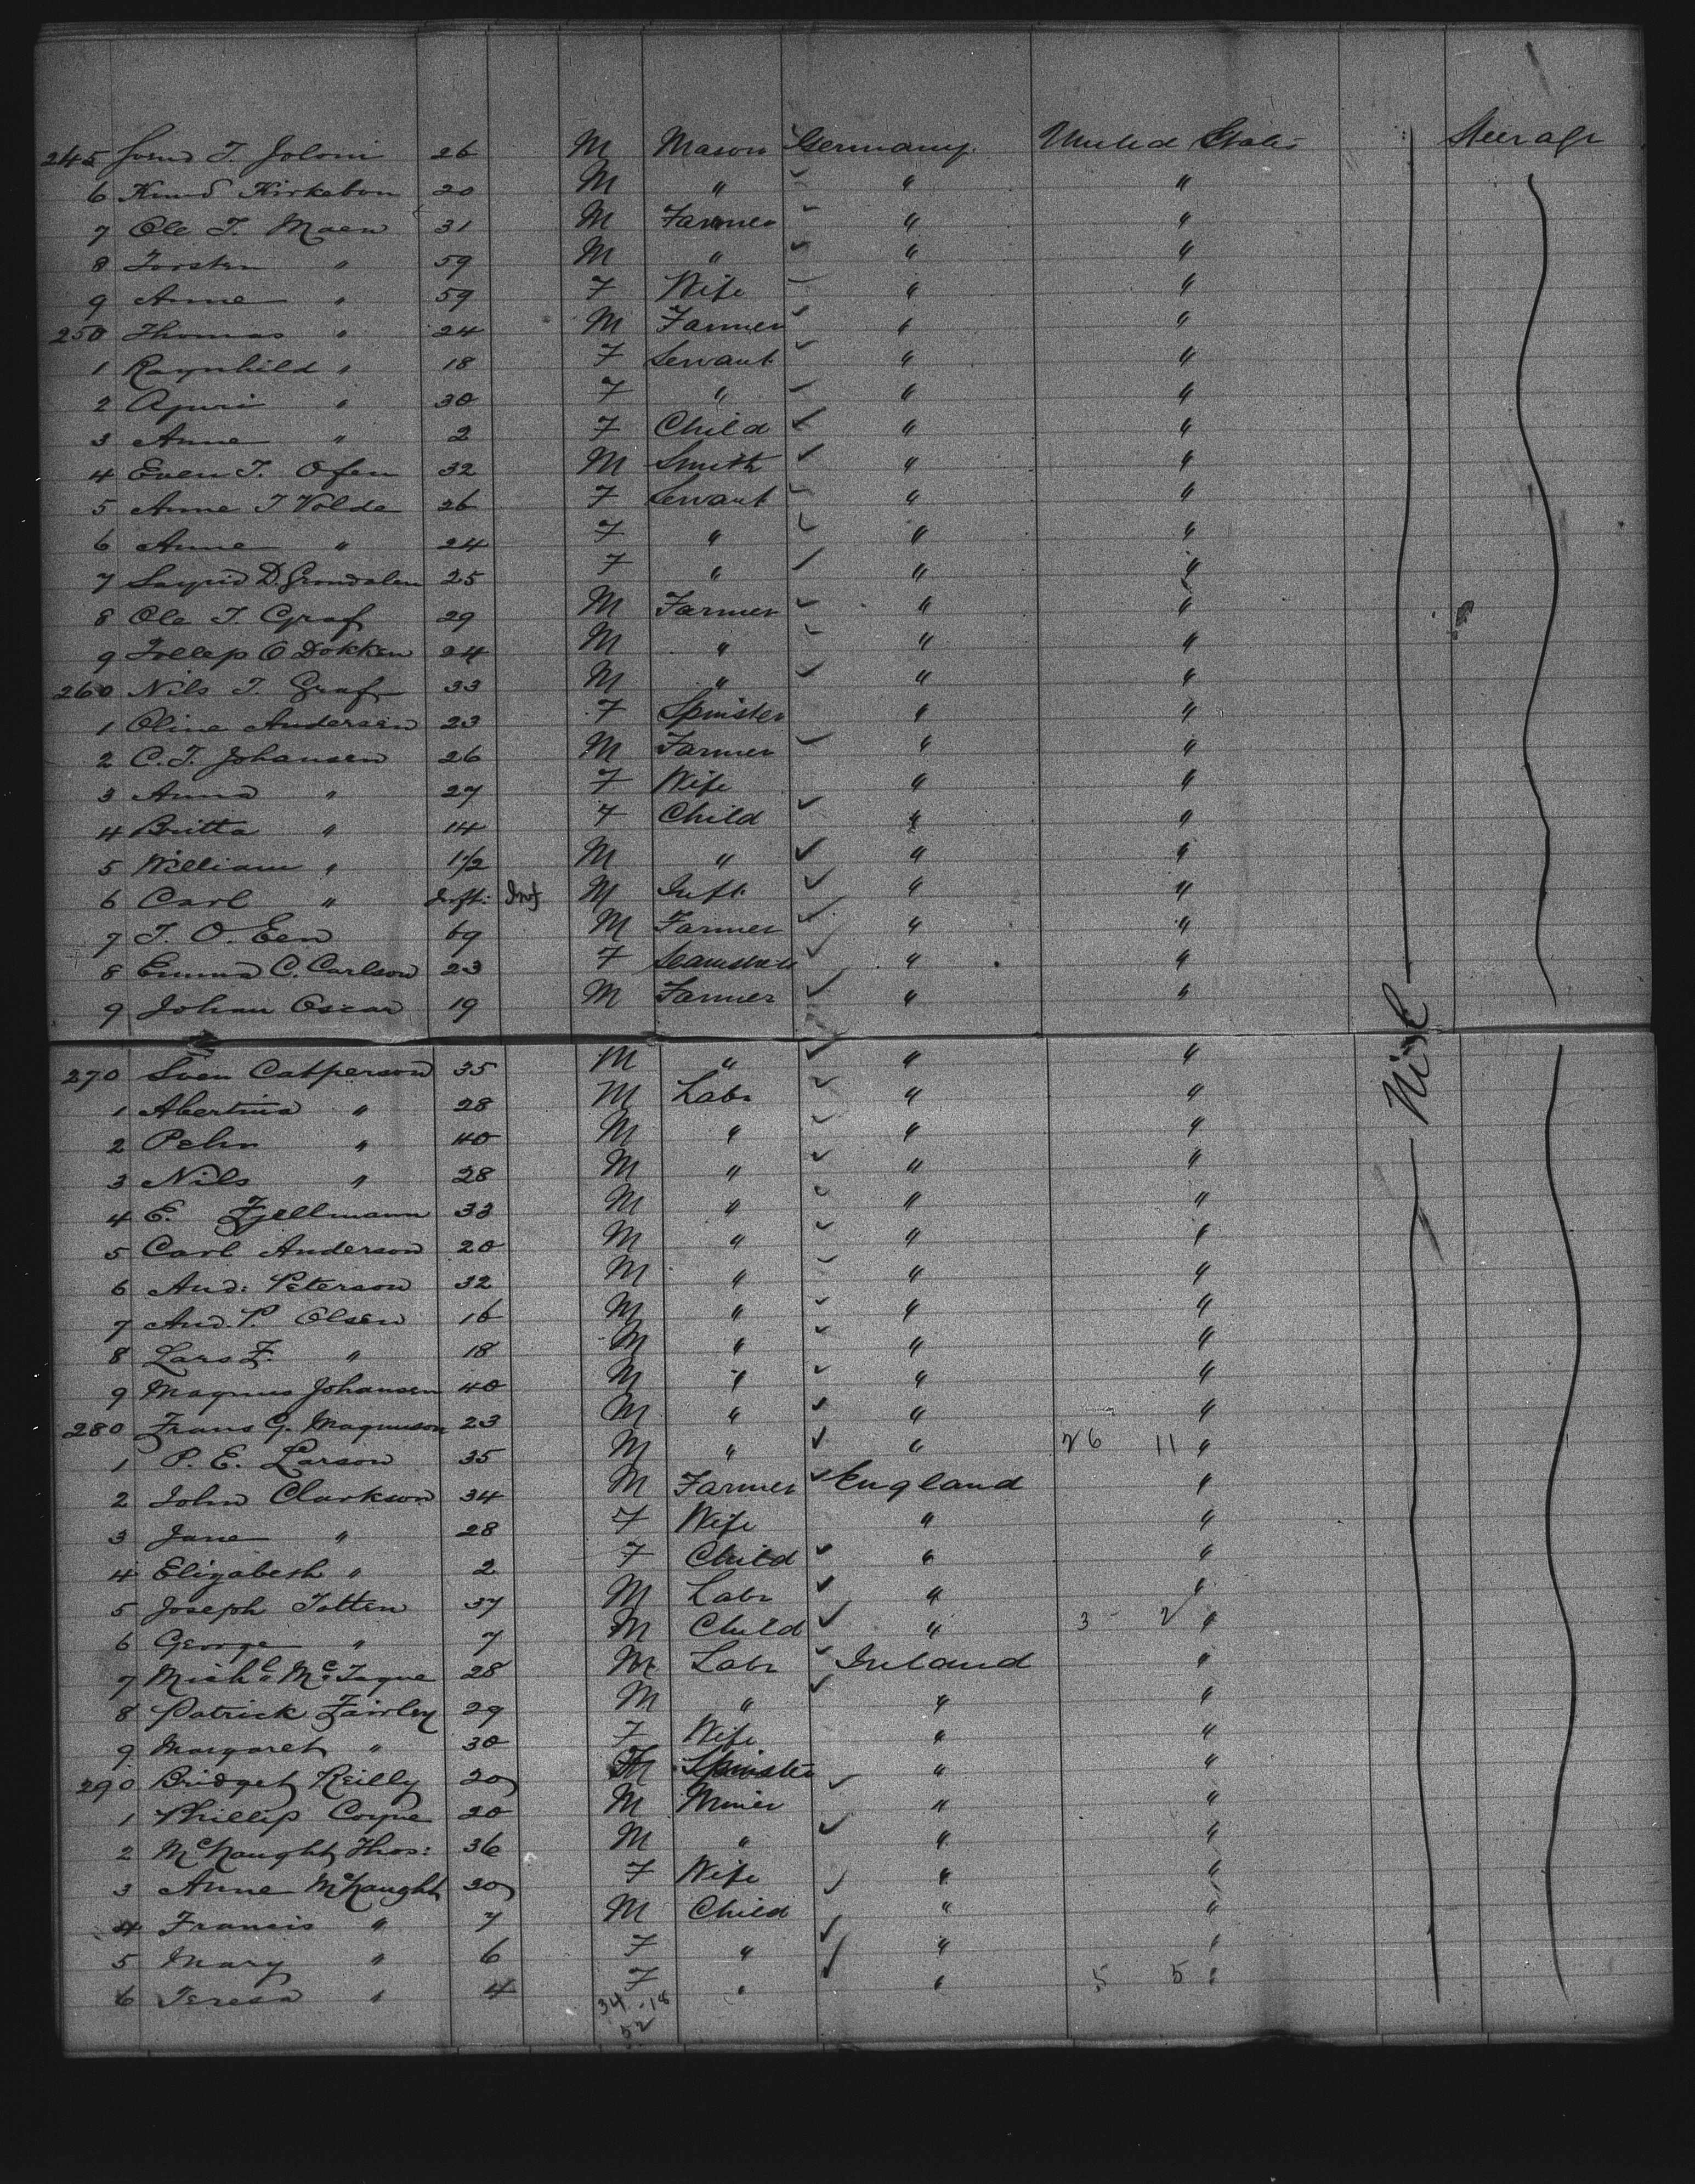 245 Svend T. Joloni 26 M Mason Germany United States Steerage
6 Knud Kirkebon 20 M " " "
7 Ole T. Moen 31 M Farmer " "
8 Torsten " 59 M " " "
9 Anne " 59 F Wife " "
250 Thomas " 24 M Farmer " "
1 Raynhild " 18 F Servant " "
2 Aguri " 30 F " " "
3 Anne " 2 F Child " "
4 Even T. Ofen 32 M Smith " "
5 Anne T Volde 26 F Servant " "
6 Anne " 24 F " " "
7 Sagrid D. Grondalen 25 F " " "
8 Ole T. Graf 29 M Farmer " "
9 Tollep O Dokken 24 M " " "
260 Nils T. Graf 33 M " " "
1 Oline Andersen 23 F Spinster " "
2 C. T. Johansen 26 M Farmer " "
3 Anna " 27 F Wife " "
4 Britta " 14 F Child " "
5 William " 1 1/2 M " " "
6 Carl " Inft: Inf M Inft " "
7 T. O. Een 69 M Farmer " "
8 Emma C. Carlson 23 F " "
9 Johan Oscar 19 M Farmer " "
270 Sven Catperson 35 M " " "
1 Abertina " 28 M Labr " "
2 Pehr " 40 M " " "
3 Nils " 28 M " " "
4 E. Fjellmann 33 M " " "
5 Carl Anderson 20 M " " "
6 And: Peterson 32 M " " "
7 And. P. Olsen 16 M " " "
8 Lars F. " 18 M " " "
9 Magnus Johansen 40 M " " "
280 Frans G. Magnuson 23 M " " "
1 P. E. Larson 35 M " " 26 11 "
2 John Clarkson 34 M Farmer England "
3 Jane " 28 F Wife " "
4 Elizabeth " 2 F Child " "
5 Joseph Totten 37 M Labr " "
6 George " 7 M Child " 3 - 2 "
7 Michl McTague 28 M Labr Ireland "
8 Patrick Fairley 29 M " " "
9 Margaret " 30 F Wife " "
290 Bridget Reilly 20 F Spinster " "
1 Phillip Coyne 20 M Miner " "
2 McNaught Thos: 36 M " " "
3 Anne McNaught 30 F Wife " "
4 Francis " 7 M Child " "
5 Mary " 6 F " " "
6 Teresa " 4 F " " 5 5 "
34 - 18
52